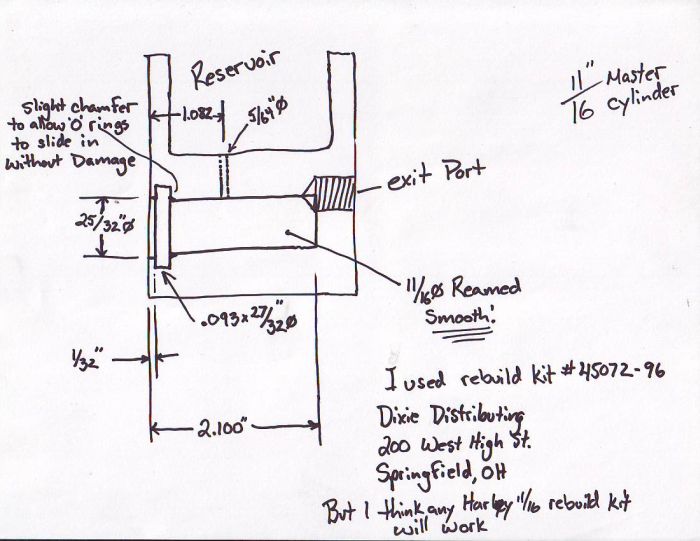 Reservoir
11"/16 Master
Cylinder
Slight chamfer
to allow 'O' rings
to slide in
without Damage
1.082
5/64"Ø
exit Port
25/32"Ø
11/16Ø Reamed
Smooth!
.093 x 27/32"Ø
1/32"
2.100"
I used rebuild kit #45072-96
Dixie Distributing
200 West High St.
Springfield, OH
But I think any Harley 11/16 rebuild kit
will work